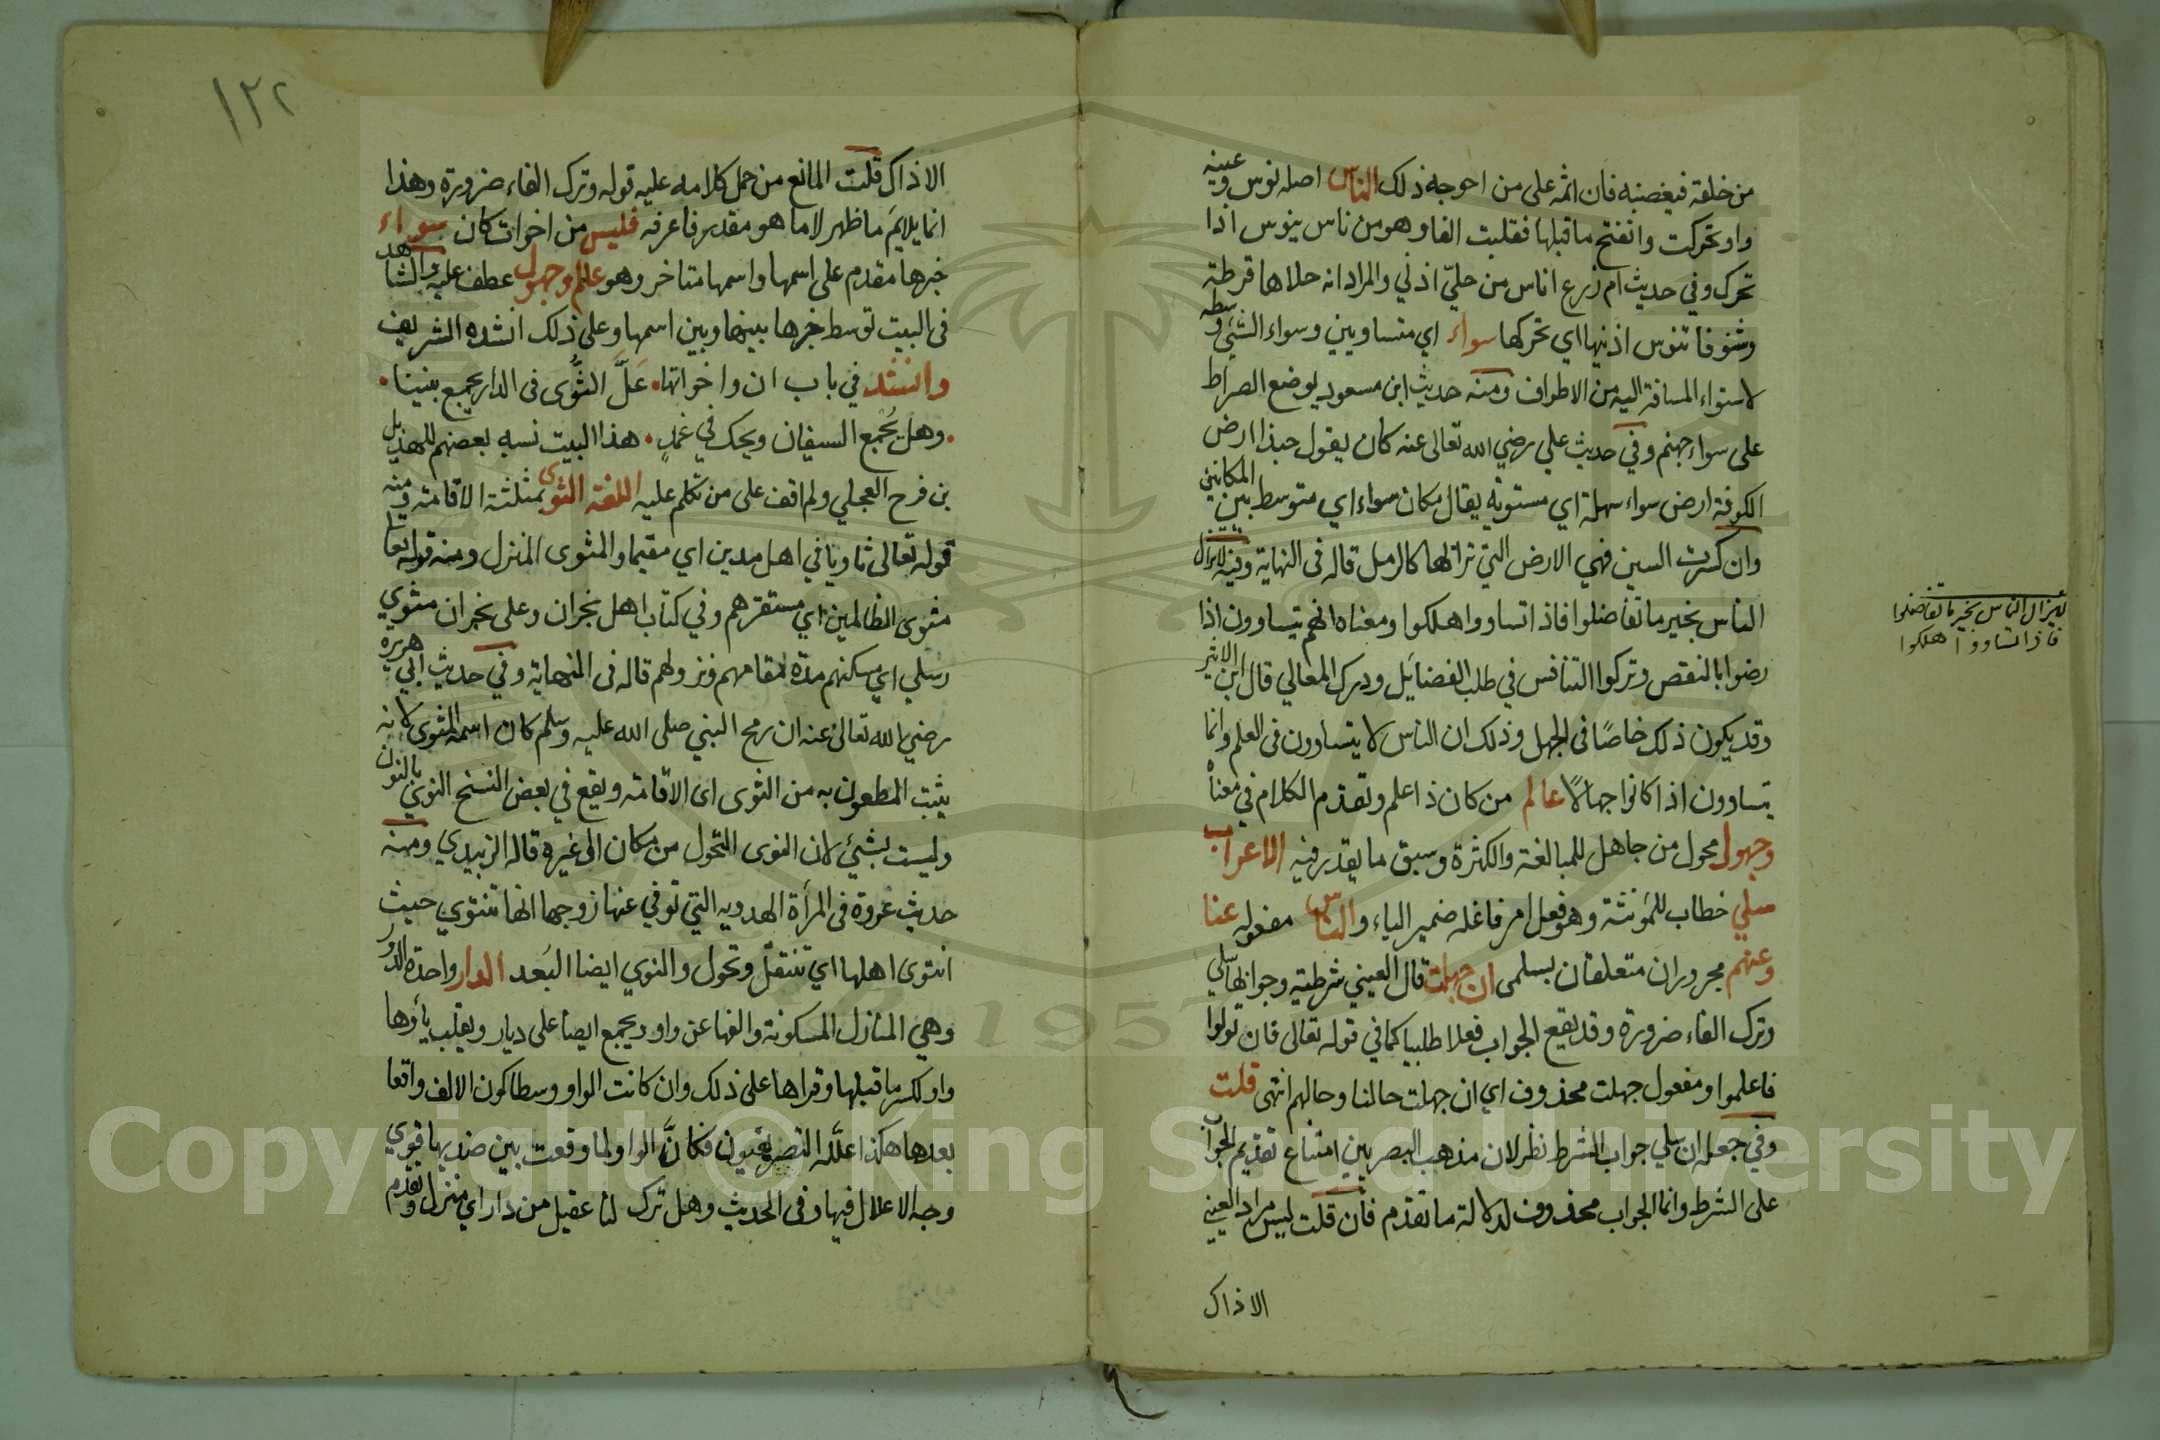 من خلقة فيغضبه فان اثمه على من احوجه ذلك الناس اصله نوس وعينه
واو تحركت وانفتح ماقبلها فقلبت الفا وهو من ناس ينوس اذا
تحرك وفي حديث ام زرع اناس من حليّ اذني والمراد انه حلاها قرطة
وشنوفا تنوس اذنيها اي تحركها سواء اي متساويين وسواء الشئ وسطه
لاستواء المسافة اليه من الاطراف ومنه حديث ابن مسعود يوضع الصراط
على سواء جهنم وفي حديث علي رضي الله تعالى عنه كان يقول حبذا ارض
الكوفة ارض سواء سهلة اي مستوية يقال مكان سواء اي متوسط بين المكانين
وان كسرت السين فهي الارض التي ترابها كالرمل قاله فى النهاية وفيه لايزال
الناس بخير ما تفاضلوا فاذا تساووا هلكوا ومعناه انهم يتساوون اذا
رضوا بالنقص وتركوا التنافس في طلب الفضايل ودرك المعالي قال ابن الاثير
وقد يكون ذلك خاصًا فى الجهل وذلك ان الناس لا يتساوون فى العلم وانما
يتساوون اذا كانوا جهالًا عالم من كان ذا علم وتقدم الكلام في معناه
وجهول محول من جاهل للمبالغة والكثرة وسبق ما يقدر فيه الاعراب
سلي خطاب للمؤنثة وهو فعل امر فاعله ضمير الياء والناس مفعوله عنا
وعنهم مجروران متعلقان بسلمى ان جهلت قال العيني شرطية وجوابها سلي
وترك الفاء ضرورة وقد يقع الجواب فعلا طلبيا كما في قوله تعالى فان تولوا
فاعلموا ومفعول جهلت محذوف اي ان جهلت حالنا وحالهم انتهى قلت
وفي جعله ان سلي جواب الشرط نظر لان مذهب البصريين امتناع تقديم الجواب
على الشرط وانما الجواب محذوف لدلالة ما تقدم فان قلت ليس مراد العيني
الا ذاك
لايزال الناس بخير ما تفاضلوا
فاذا تساووا هلكوا
١٢٢
الا ذاك قلت المانع من حمل كلامه عليه قوله وترك الفاء ضرورة وهذا
انما يلايم ما ظهر لا ما هو مقدر فاعرفه فليس من اخوات كان سواء
خبرها مقدم على اسمها واسمها متاخر وهو علم وجهول عطف عليه والشاهد
فى البيت توسط خبرها بينها وبين اسمها وعلى ذلك انشده الشريف
وانشد في باب ان واخواتها علَّ الثُّوى فى الدار يجمع بيننا
وهل يُجمع السيفان ويحك في غمدٍ هذا البيت نسبه بعضهم للهذيل
بن فرح العجلي ولم اقف على من تكلم عليه اللغة الثوى بمثلثة الاقامة ومنه
قوله تعالى ثاويا في اهل مدين اي مقيما والمثوى المنزل ومنه قوله تعا
مثوى الظالمين اي مستقرهم وفي كتاب اهل نجران وعلى نجران مثوي
رسلي اي مسكنهم مدة مقامهم ونزولهم قاله فى النهاية وفي حديث ابي هريرة
رضي الله تعالى عنه ان رمح النبي صلى الله عليه وسلم كان اسمه المثوى لانه
يثبت المطعون به من الثوى اى الاقامة ويقع في بعض النسخ النوي بالنون
وليست بشئ لان النوى التحول من مكان الى غيره قاله الزبيدي ومنه
حديث عروة فى المرأة البدوية التي توفي عنها زوجها انها تنتوي حيث
انتوى اهلها اي تنتقل وتحول والنوي ايضا البعد الدار واحدة الدور
وهي المنازل المسكونة والفها عن واو ويجمع ايضا على ديار ويقلب ياؤها
واو لكسر ما قبلها وقراها على ذلك وان كانت الواو وسطا كون الالف واقعا
بعدها هكذا علّله التصريفيون فكانَّ الواو لما وقعت بين ضديها قوي
وجه الاعلال فيها وفى الحديث وهل ترك لنا عقيل من دار اي منزل وتقدم
Copyright © King Saud University
1957